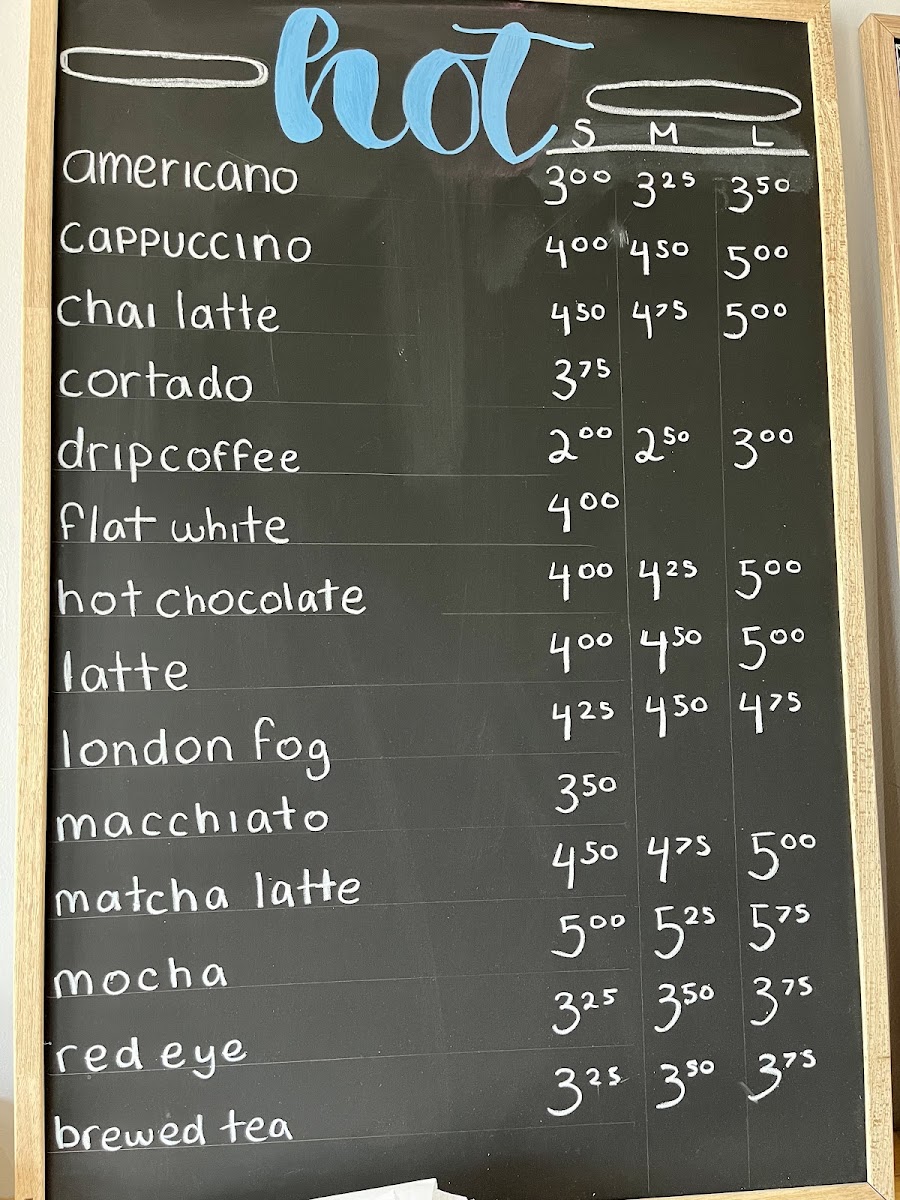 hot
S M L
americano 3.00 3.25 3.50
cappuccino 4.00 4.50 5.00
chai latte 4.50 4.75 5.00
cortado 3.75
drip coffee 2.00 2.50 3.00
flat white 4.00
hot chocolate 4.00 4.25 5.00
latte 4.00 4.50 5.00
london fog 4.25 4.50 4.75
macchiato 3.50
matcha latte 4.50 4.75 5.00
mocha 5.00 5.25 5.75
red eye 3.25 3.50 3.75
brewed tea 3.25 3.50 3.75